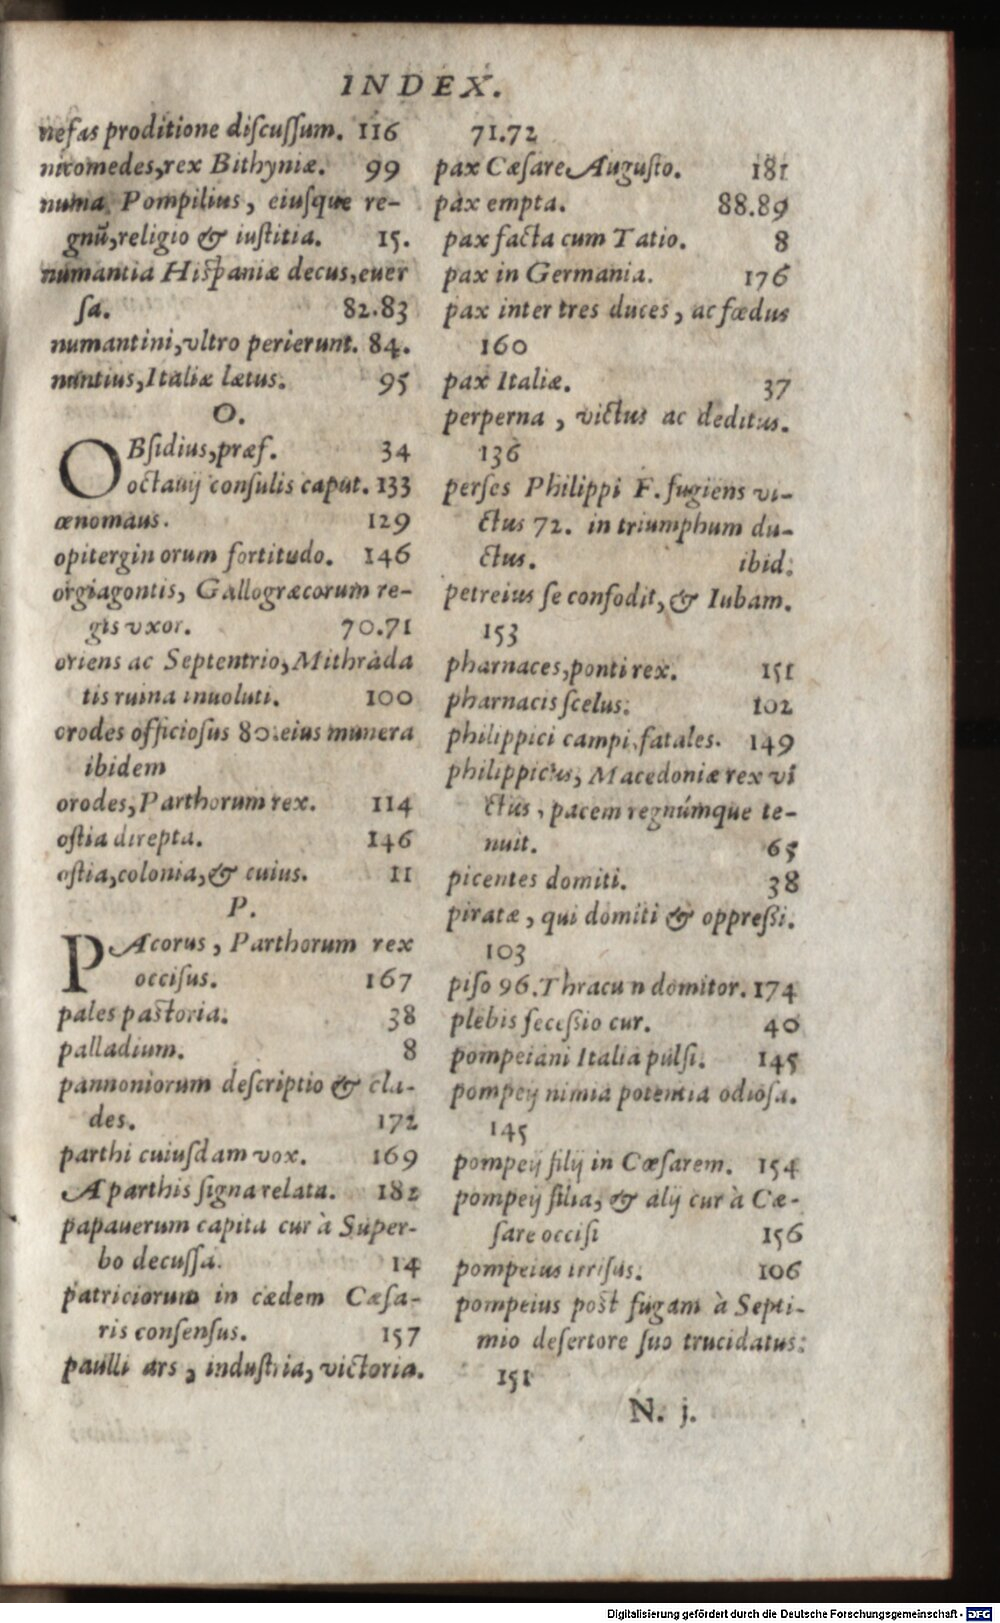 INDEX.
nefas proditione diſcuſſum. 116
nicomedes, rex Bithyniæ. 99
numa Pompilius, eiuſque re-
gnū, religio & iuſtitia. 15.
numantia Hiſpaniæ decus, euer
ſa. 82.83
numantini, vltro perierunt. 84.
nuntius, Italiæ lætus. 95
O.
OBſidius, præf. 34
octauij conſulis caput. 133
œnomaus. 129
opiterginorum fortitudo. 146
orgiagontis, Gallogræcorum re-
gis vxor. 70.71
oriens ac Septentrio, Mithrada
tis ruina inuoluti. 100
orodes officioſus 80. eius munera
ibidem
orodes, Parthorum rex. 114
oſtia direpta. 146
oſtia, colonia, & cuius. 11
P.
PAcorus, Parthorum rex
occiſus. 167
pales paſtoria. 38
palladium. 8
pannoniorum deſcriptio & cla-
des. 172
parthi cuiuſdam vox. 169
A parthis ſigna relata. 182
papauerum capita cur à Super-
bo decuſſa. 14
patriciorum in cædem Cæſa-
ris conſenſus. 157
paulli ars, induſtria, victoria.
71.72
pax Cæſare Auguſto. 181
pax empta. 88.89
pax facta cum Tatio. 8
pax in Germania. 176
pax inter tres duces, ac fœdus
160
pax Italiæ. 37
perperna, victus ac deditus.
136
perſes Philippi F. fugiens vi-
ctus 72. in triumphum du-
ctus. ibid.
petreius ſe confodit, & Iubam.
153
pharnaces, ponti rex. 151
pharnacis ſcelus. 102
philippici campi, fatales. 149
philippicus, Macedoniæ rex vi
ctus, pacem regnúmque te-
nuit. 65
picentes domiti. 38
piratæ, qui domiti & oppreßi.
103
piſo 96. Thracu n domitor. 174
plebis ſeceßio cur. 40
pompeiani Italia pulſi. 145
pompeij nimia potentia odioſa.
145
pompeij filij in Cæſarem. 154
pompeij filia, & alij cur à Cæ-
ſare occiſi 156
pompeius irriſus. 106
pompeius poſt fugam à Septi-
mio deſertore ſuo trucidatus.
151
N. j.
Digitalisierung gefördert durch die Deutsche Forschungsgemeinschaft - DFG